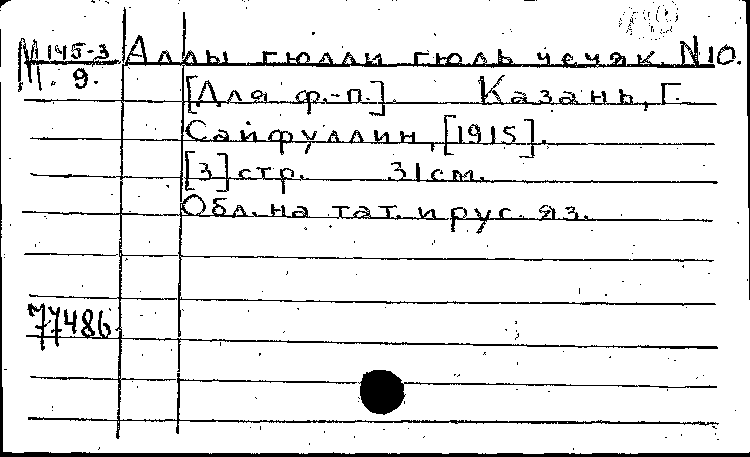 М 145-3
М. 9.
Аллы гюлли гюль чечяк. N10.
[Для ф.-п.]. Казань, Г.
Сайфуллин, [1915].
[3] стр. 31 см.
Обл. на тат. и рус. яз.
77486